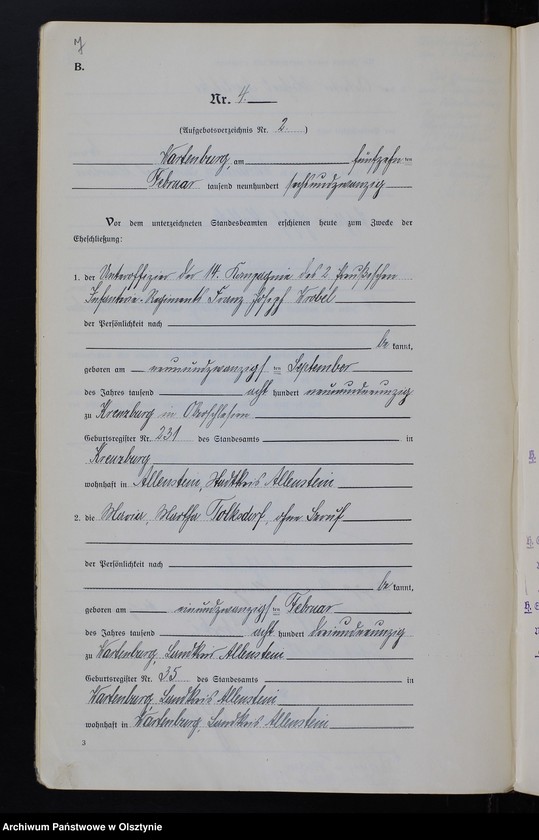 B.
Nr. 4.
(Aufgebotsverzeichnis Nr. 2.)
Wartenburg, am fünfzehnten
Februar tausend neunhundert sechsundzwanzig
Vor dem unterzeichneten Standesbeamten erschienen heute zum Zwecke der
Eheschließung:
1. der Unteroffizier der 14. Kompagnie des 2 Preußischen
Infanterie-Regiments Franz Joseph Wrobel
der Persönlichkeit nach
be kannt,
geboren am neunundzwanzigsten September
des Jahres tausend acht hundert neunundneunzig
zu Kreuzburg in Oberschlesien
Geburtsregister Nr. 231 des Standesamts in
Kreuzburg
wohnhaft in Allenstein, Stadtkreis Allenstein
2. die Maria, Martha Tolksdorf, ohne Beruf
der Persönlichkeit nach
be kannt,
geboren am einundzwanzigsten Februar
des Jahres tausend acht hundert dreiundneunzig
zu Wartenburg, Landkreis Allenstein
Geburtsregister Nr. 35 des Standesamts in
Wartenburg, Landkreis Allenstein
wohnhaft in Wartenburg, Landkreis Allenstein
3
Archiwum Państwowe w Olsztynie